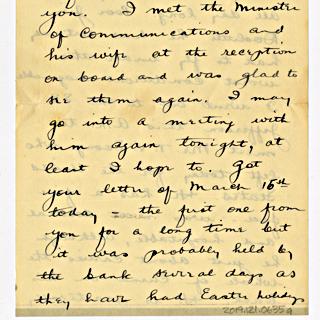 you. I met the Minister
of Communications and
his wife at the reception
on board and was glad to
see them again. I may
go into a meeting with
him again tonight, at
least I hope to. Got
your letter of March 15th
today - the first one from
you for a long time but
it was probably held by
the bank several days as
they have had Easter holidays
2019.121.0635a